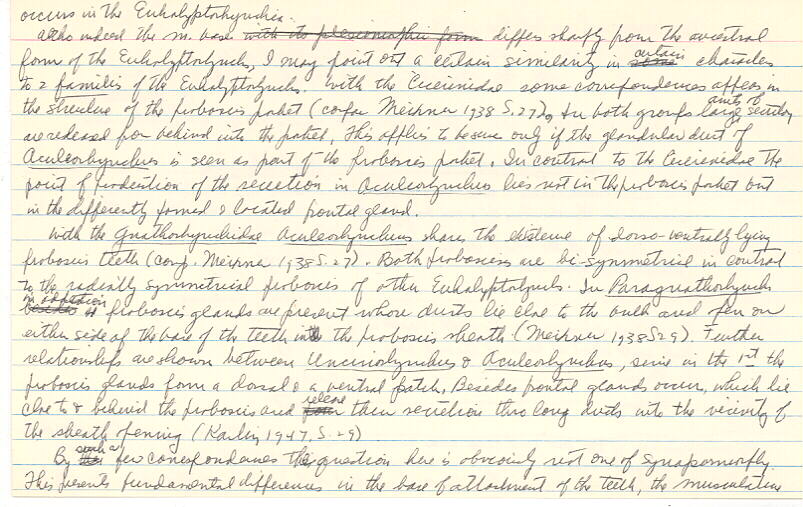 occurs in the Eukalyptorhynchia.
Altho indeed the m. base with its plesiomorphic form differs sharply from the ancestral
form of the Eukalyptorhynch, I may point out a certain similarity in some certain characters
to 2 families of the Eukalyptorhynchs. With the Cicerinidae some correspondences appear in
the structure of the proboscis pocket (confer Meixner 1938 S.27), in both groups large amts of secretory
are released from behind into the pocket, this applies to be sure only if the glandular duct of
Aculeorhynchus is seen as part of the proboscis pocket. In contrast to the Cicerinidae the
point of production of the secretion in Aculeorhynchus lies not in the proboscis pocket but
in the differently formed & located frontal gland.
With the Gnathorhynchidae Aculeorhynchus shares the existence of dorso-ventrally lying
proboscis teeth (conf. Meixner 1938 S.27). Both proboscises are bi-symmetrical in contrast
to the radially symmetrical proboscis of other Eukalyptorhynchs. In Paragnathorhynch
besides in addition proboscis glands are present whose ducts lie close to the bulb and open on
either side of the base of the teeth into the proboscis sheath (Meixner 1938 S29). Further
relationships are shown between Uncinorhynchus & Aculeorhynchus, since in the 1st the
proboscis glands form a dorsal & a ventral patch. Besides frontal glands occur, which lie
close to & behind the proboscis and release their secretion thru long ducts into the vicinity of
the sheath opening (Karling 1947, S. 29)
By such a few correspondences the question here is obviously not one of synapomorphy.
This presents fundamental differences in the base of attachment of the teeth, the musculature